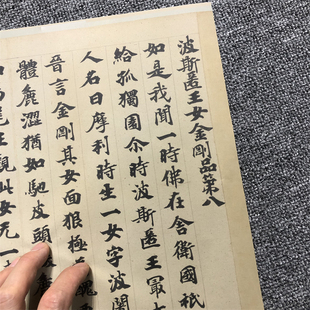 波斯匿王女金剛品第八
如是我聞一時佛在舍衛國祇
給孤獨園尒時波斯匿王冣大
人名曰摩利時生一女字波闍
晉言金剛其女面狠極為醜
體麁澀猶如駞皮頭
王觀此女无一